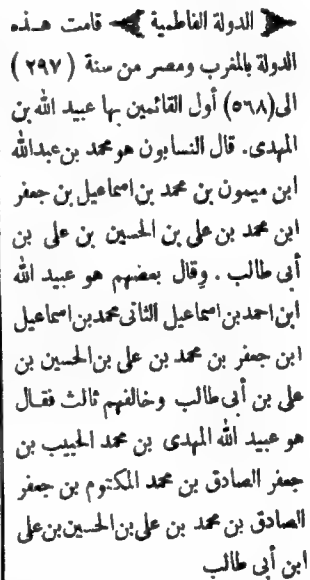 الدولة الفاطمية قامت هـذه
الدولة بالمغرب ومصر من سنة ( ٢٩٧ )
الى(٥٦٨) أول القائمين بها عبيد الله بن
المهدى. قال النسابون هو محمد بن عبدالله
ابن ميمون بن محمد بن اسماعيل بن جعفر
ابن محمد بن على بن الحسين بن على بن
أبى طالب . وقال بعضهم هو عبيد الله
ابن احمد بن اسماعيل الثانى محمد بن اسماعيل
ابن جعفر بن محمد بن على بن الحسين بن
على بن أبى طالب وخالفهم ثالث فقـال
هو عبيد الله المهدى بن محمد الحبيب بن
جعفر الصادق بن محمد المكتوم بن جعفر
الصادق بن محمد بن على بن الحسين بن على
ابن أبى طالب